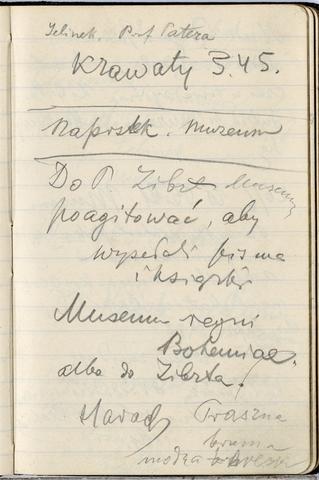 Jelinek. Prof Patera
Krawaty 3.45.
Naprstek. Muzeum
Do P. Zibrt Museum
poagitować, aby
wysełali pisma
i książki
Museum regni
Bohemiae.
albo do Zibrta!
Harach Praszna
brama
modra